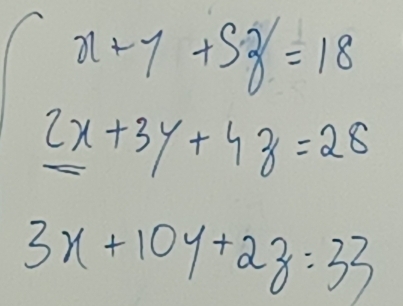 x + y + 5z = 18
2x + 3y + 4z = 28
3x + 10y + 2z = 33